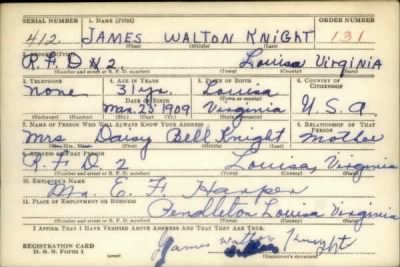 SERIAL NUMBER 1. NAME (PRINT) ORDER NUMBER
412 JAMES WALTON KNIGHT 131
(First) (Middle) (Last)
R.F.D #2. Louisa Virginia
(Number and street or R. F. D. number) (Town) (County) (State)
3. TELEPHONE 4. AGE IN YEARS 5. PLACE OF BIRTH 6. COUNTRY OF CITIZENSHIP
none 31 yrs. Louisa
DATE OF BIRTH (Town or county)
Mar. 23 1909 Virginia U.S.A.
(Exchange) (Number) (Mo.) (Day) (Yr.) (State or country)
7. NAME OF PERSON WHO WILL ALWAYS KNOW YOUR ADDRESS 8. RELATIONSHIP OF THAT PERSON
Mrs Daisy Bell Knight Mother
(Mr., Mrs., Miss) (First) (Middle) (Last)
9. ADDRESS OF THAT PERSON
R.F.D 2 Louisa, Virginia
(Number and street or R. F. D. number) (Town) (County) (State)
10. EMPLOYER'S NAME
Mr. E. F. Harper
11. PLACE OF EMPLOYMENT OR BUSINESS
Pendleton Louisa Virginia
(Number and street or R. F. D. number) (Town) (County) (State)
I AFFIRM THAT I HAVE VERIFIED ABOVE ANSWERS AND THAT THEY ARE TRUE.
REGISTRATION CARD
D. S. S. FORM 1
James Walton Knight